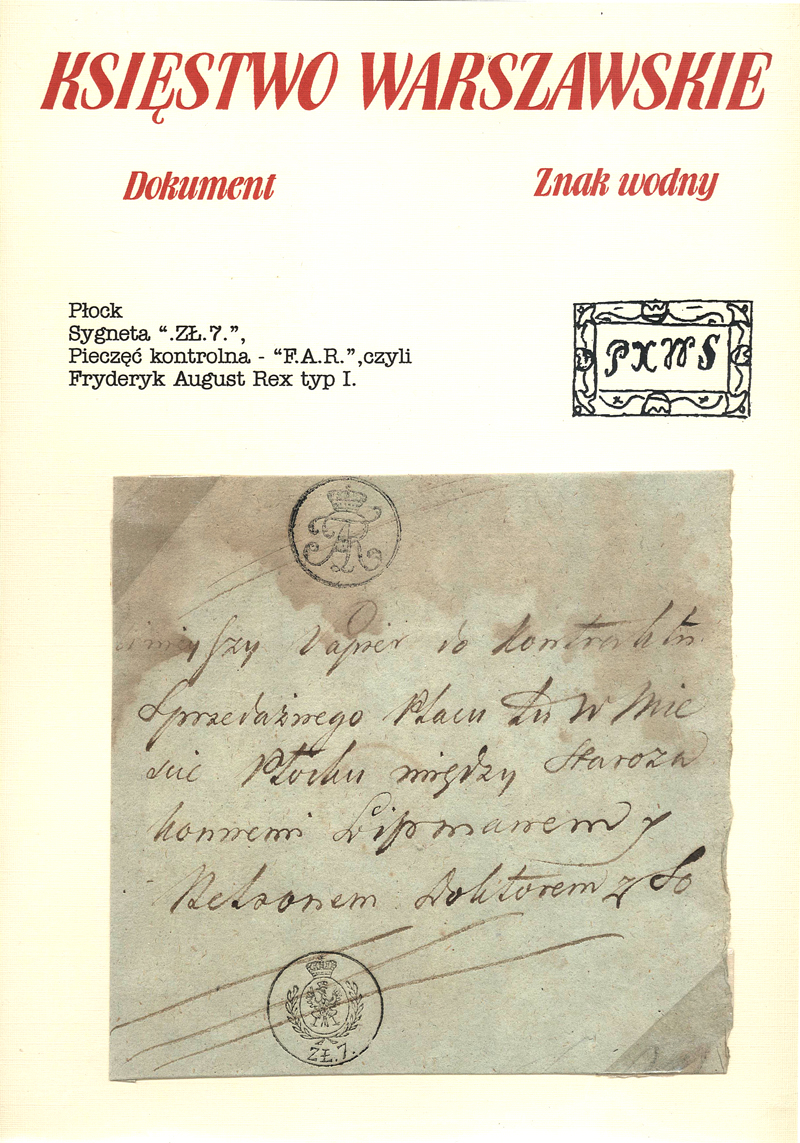 KSIĘSTWO WARSZAWSKIE
Dokument
Znak wodny
Płock
Sygneta “.ZŁ.7.”,
Pieczęć kontrolna - “F.A.R.”,czyli
Fryderyk August Rex typ I.
PXWS
Papier do Kontraktu
Sprzedażnego Placu tu W Mie
scie Płocku między Staroza
konnemi Lipmanem y
Doktorem z
ZŁ.7.